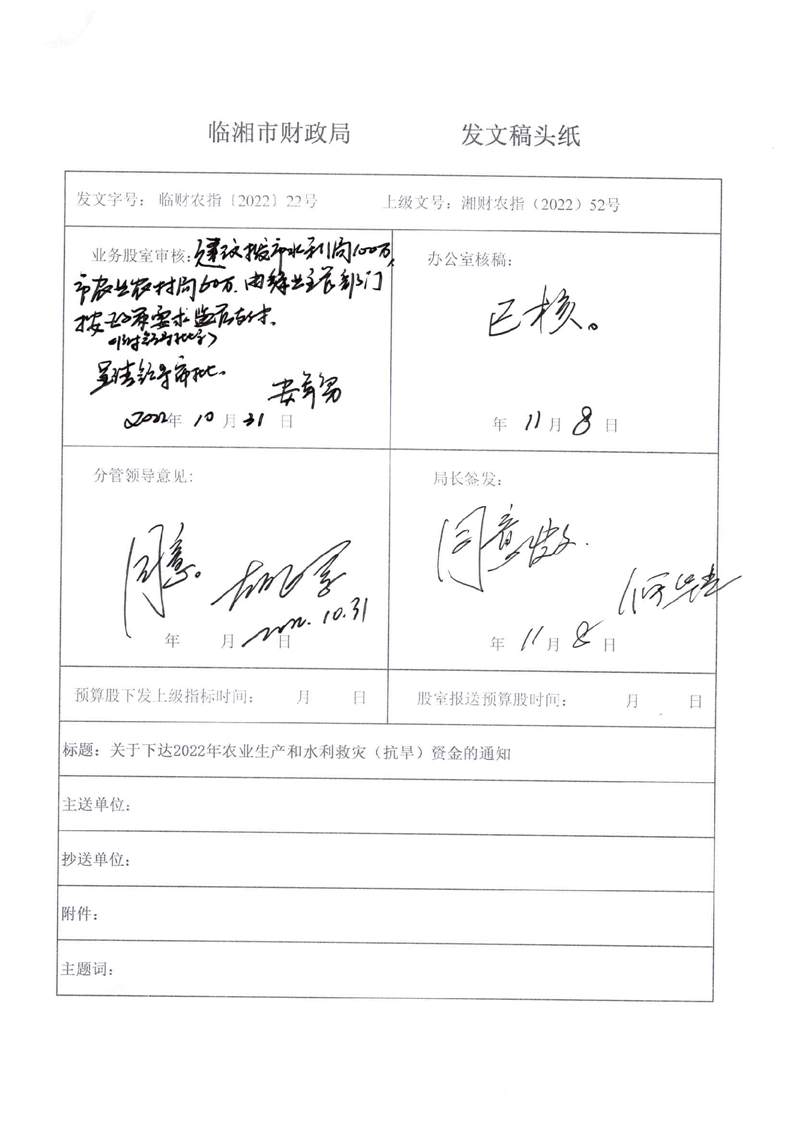 临湘市财政局 发文稿头纸
发文字号: 临财农指〔2022〕22号 上级文号: 湘财农指（2022）52号
业务股室审核: 建议拨市水利局100万,
市农业农村局60万.由主管部门
按要求监后支付.
呈请领导审批.
2022年 10 月 31 日
办公室核稿:
已核。
年 11 月 8 日
分管领导意见:
同意。
2022. 10.31
年 月 日
局长签发:
同意发文.
年 11 月 8 日
预算股下发上级指标时间: 月 日 股室报送预算股时间: 月 日
标题: 关于下达2022年农业生产和水利救灾（抗旱）资金的通知
主送单位:
抄送单位:
附件:
主题词: